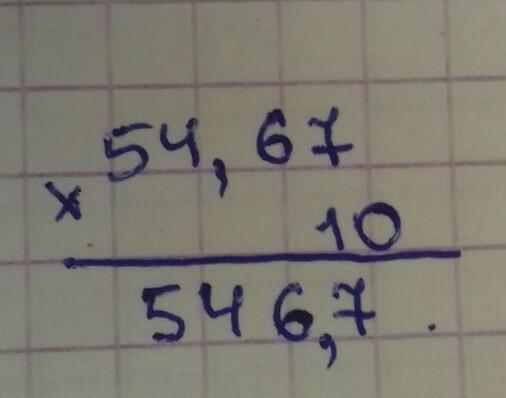 54,67
× 10
546,7.